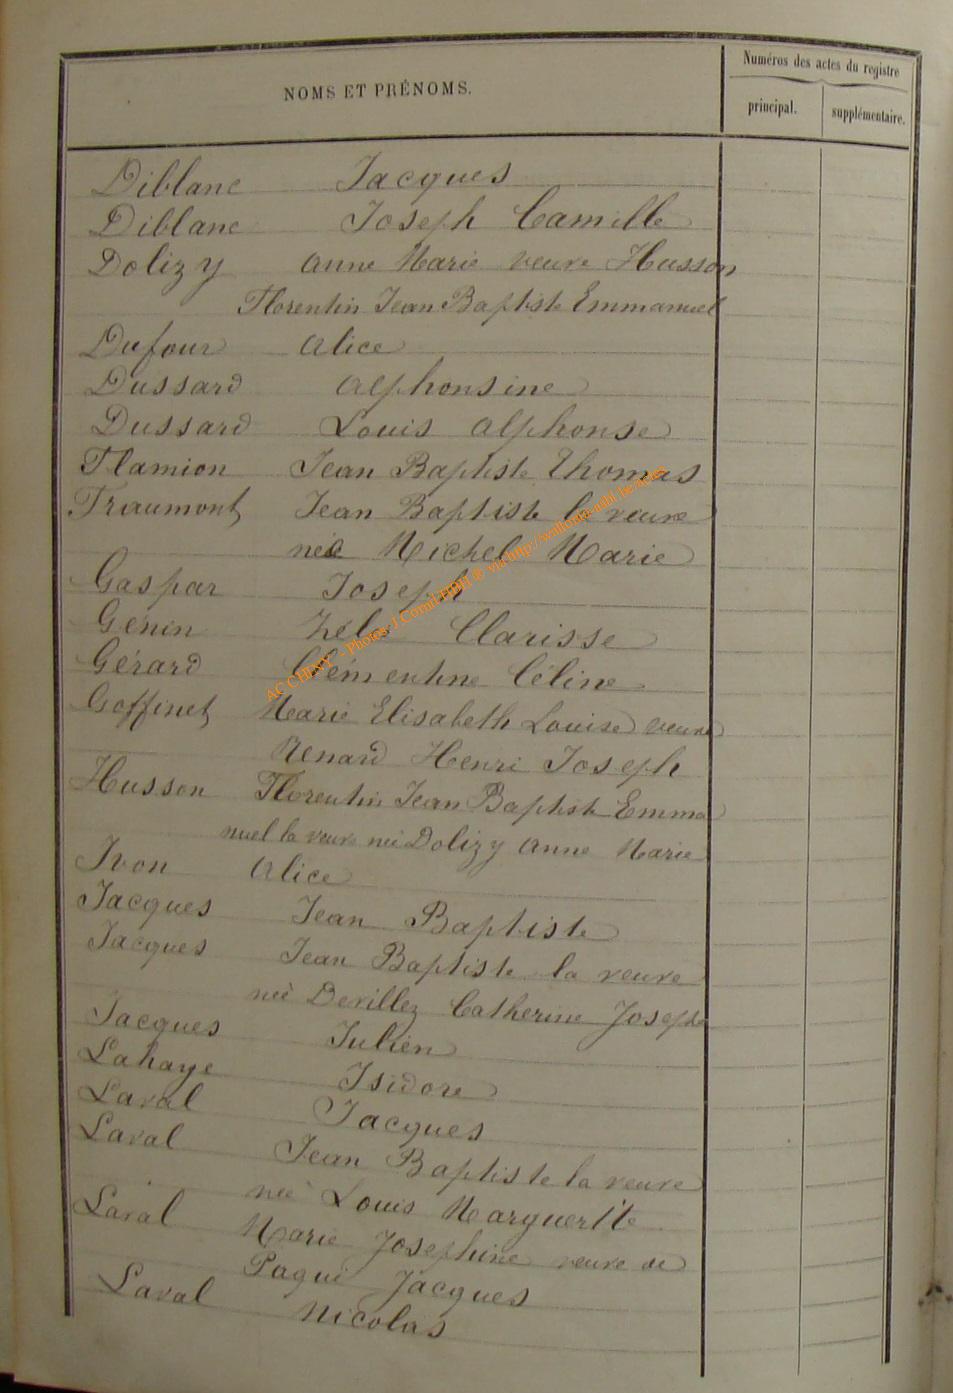 Numéros des actes du registre
NOMS ET PRÉNOMS.
principal. supplémentaire.
Diblanc Jacques
Diblanc Joseph Camille
Dolizy Anne Marie veuve Husson
Florentin Jean Baptiste Emmanuel
Dufour Alice
Dussard Alphonsine
Dussard Louis Alphonse
Flamion Jean Baptiste Thomas
Friaumont Jean Baptiste la veuve
née Michel Marie
Gaspar Joseph
Génin Clarisse
Gérard Clémentine Céline
Goffinet Marie Elisabeth Louise veuve
Renard Henri Joseph
Husson Florentin Jean Baptiste Emma
nuel la veuve née Dolizy Anne Marie
Ivon Alice
Jacques Jean Baptiste
Jacques Jean Baptiste la veuve
née Devillez Catherine Josephe
Jacques Julien
Lahaye Isidore
Laval Jacques
Laval Jean Baptiste la veuve
née Louis Marguerite
Laval Marie Josephine veuve de
Jacques
Laval Nicolas
AC CHINY - Photos J.Cornil HBH ® via http://wallonia-asbl.be